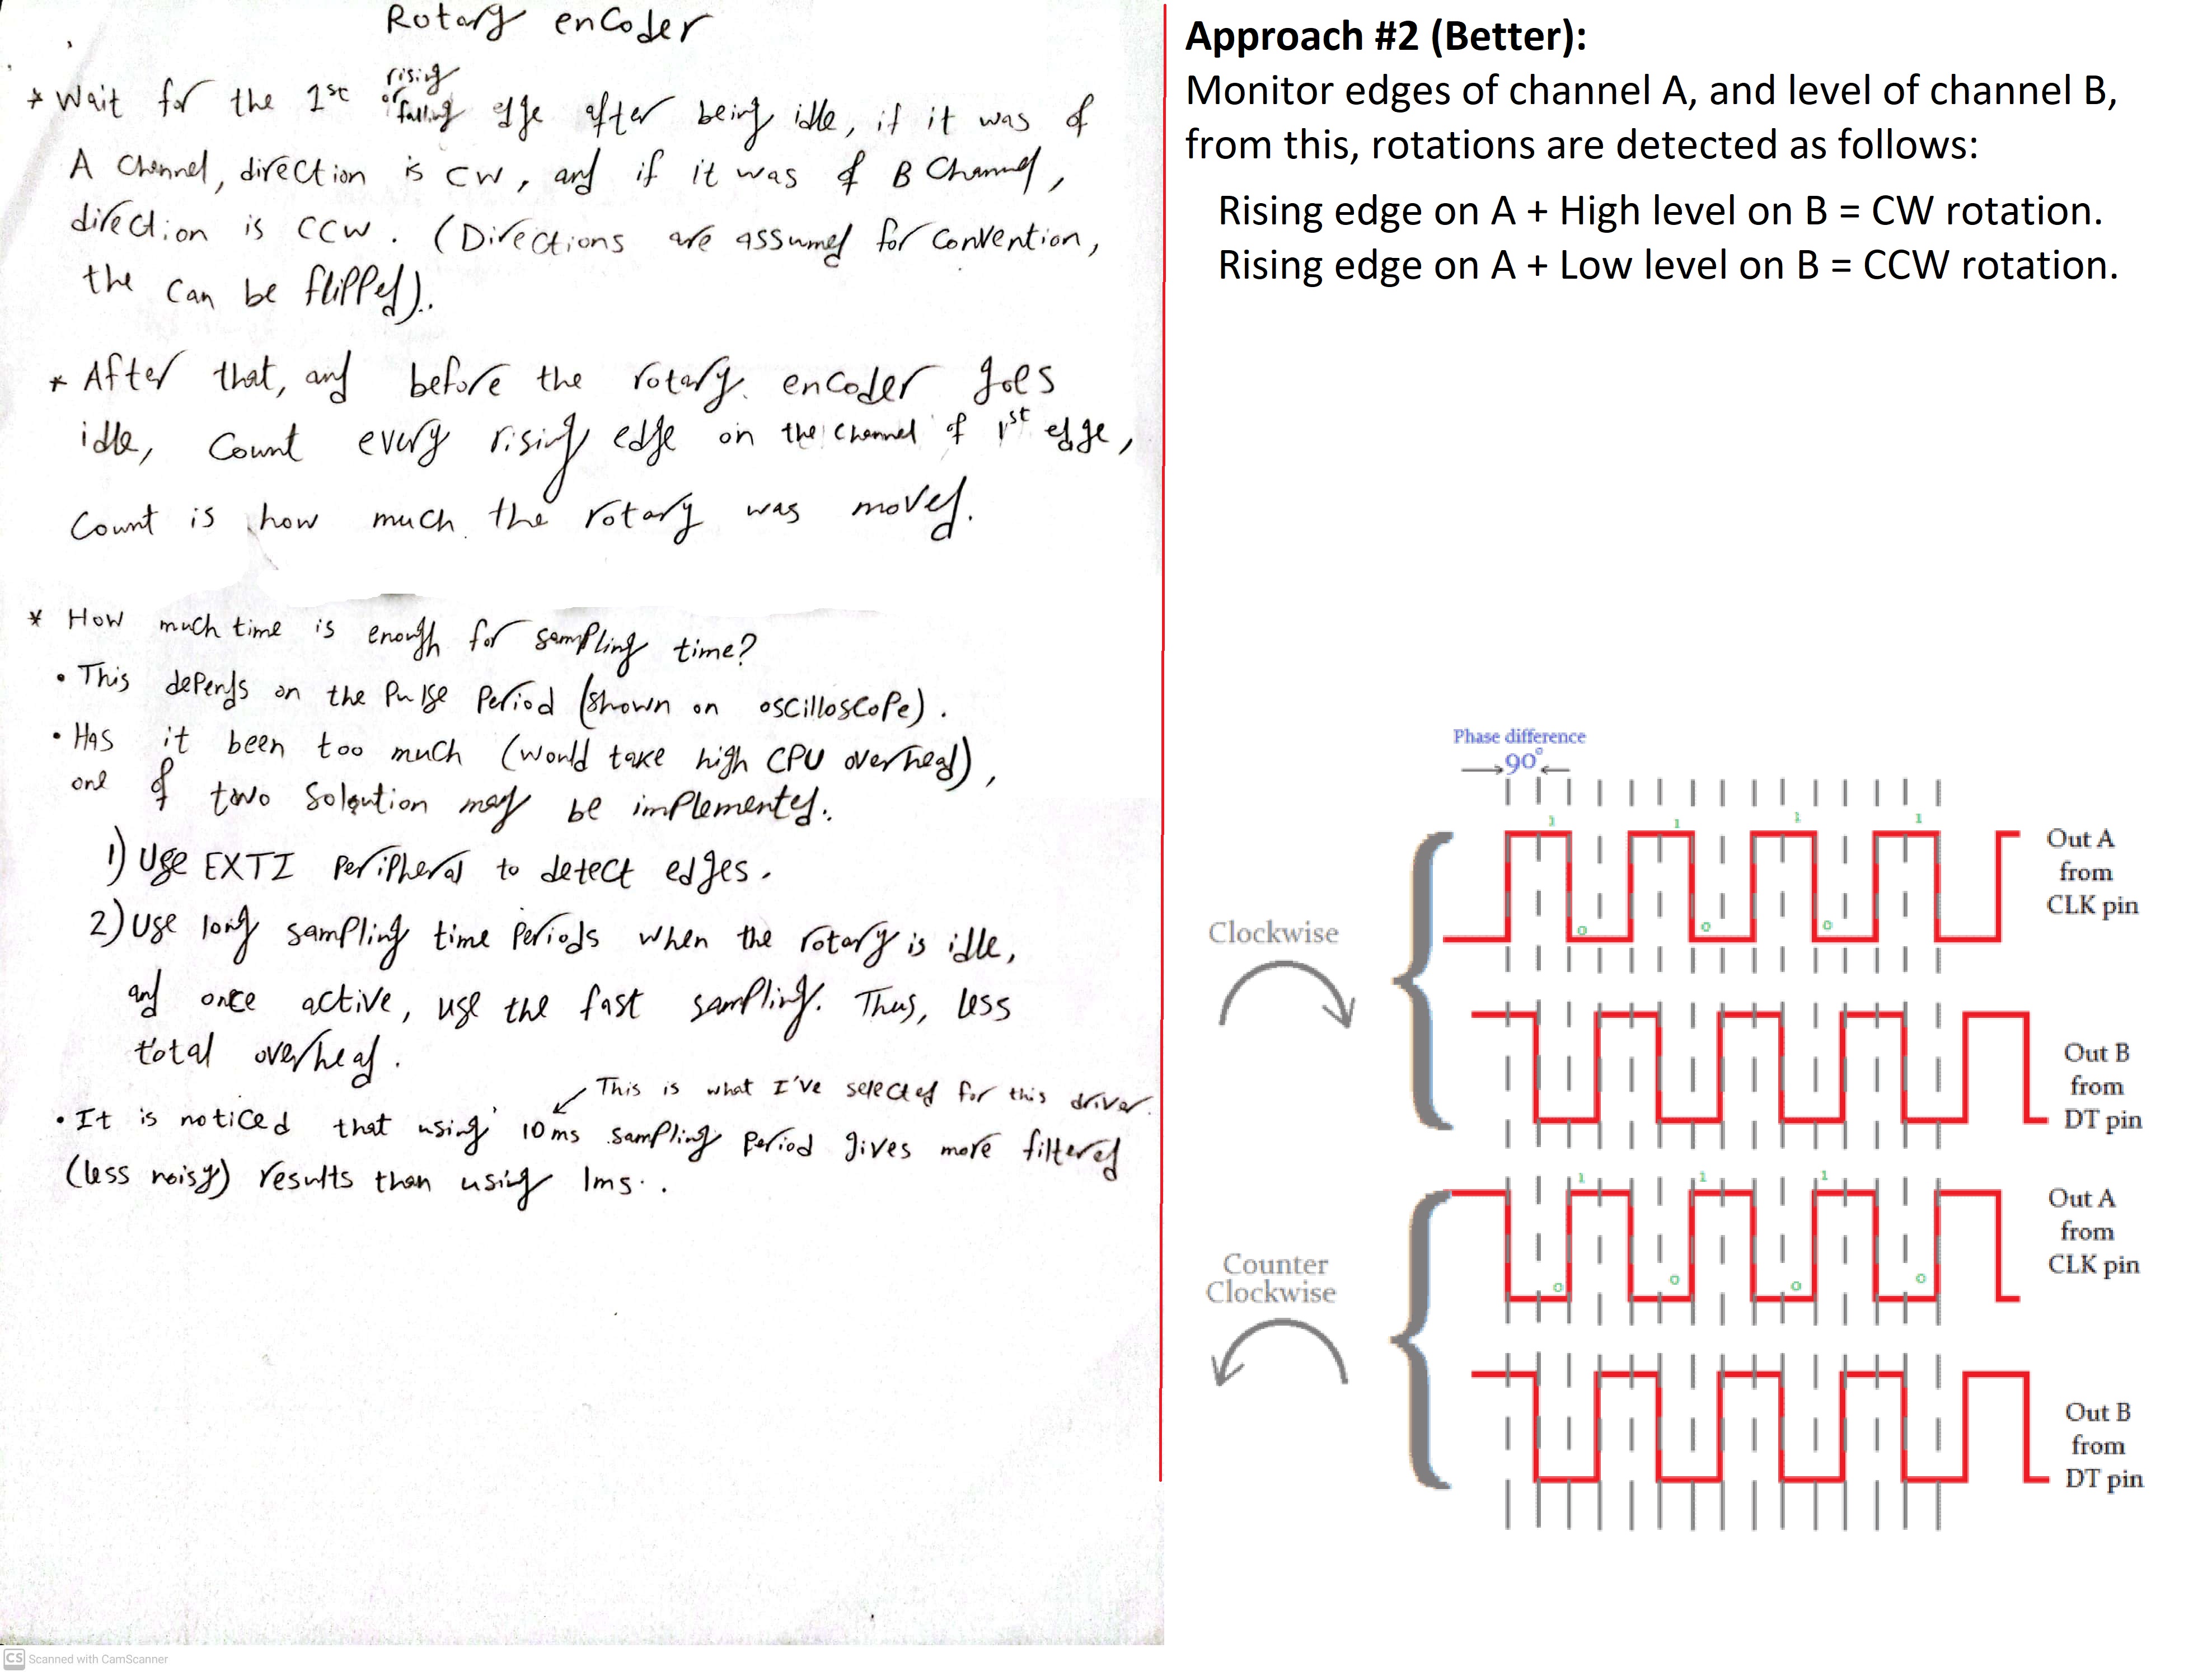 Rotary encoder
* Wait for the 1st rising or falling edge after being idle, if it was of
A Channel, direction is CW, and if it was of B Channel,
direction is CCW. (Directions are assumed for convention,
the can be flipped).
* After that, and before the rotary encoder goes
idle, Count every rising edge on the channel of 1st edge,
Count is how much the rotary was moved.
* How much time is enough for sampling time?
• This depends on the Pulse Period (shown on oscilloscope).
• Has it been too much (would take high CPU overhead),
one of two Soloution may be implemented.
1) Use EXTI Peripheral to detect edges.
2) Use long sampling time Periods when the rotary is idle,
and once active, use the fast sampling. Thus, less
total overhead.
This is what I've selected for this driver.
• It is noticed that using 10ms sampling period gives more filtered
(less noisy) results than using 1ms.
CS Scanned with CamScanner
Approach #2 (Better):
Monitor edges of channel A, and level of channel B,
from this, rotations are detected as follows:
Rising edge on A + High level on B = CW rotation.
Rising edge on A + Low level on B = CCW rotation.
Phase difference
90°
1 1 1 1
Out A
from
CLK pin
0 0 0
Clockwise
Out B
from
DT pin
1 1 1
Out A
from
CLK pin
0 0 0 0
Counter
Clockwise
Out B
from
DT pin